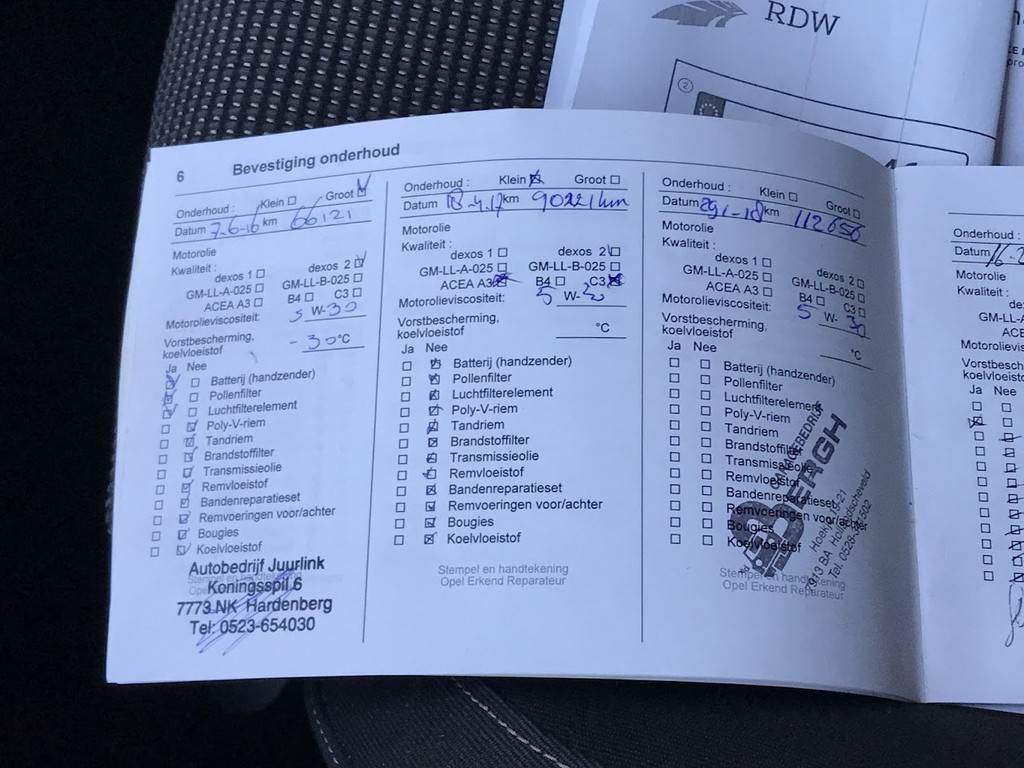 RDW
2
6 Bevestiging onderhoud
Onderhoud : Klein Groot
Datum 7-6-16 km 66121
Motorolie
Kwaliteit :
dexos 1 dexos 2
GM-LL-A-025 GM-LL-B-025
ACEA A3 B4 C3
Motorolieviscositeit: 5 W-30
Vorstbescherming,
koelvloeistof -30 °C
Ja Nee
Batterij (handzender)
Pollenfilter
Luchtfilterelement
Poly-V-riem
Tandriem
Brandstoffilter
Transmissieolie
Remvloeistof
Bandenreparatieset
Remvoeringen voor/achter
Bougies
Koelvloeistof
Autobedrijf Juurlink
Koningsspil 6
7773 NK Hardenberg
Tel: 0523-654030
Onderhoud : Klein Groot
Datum 18-4-17 km 90221 km
Motorolie
Kwaliteit :
dexos 1 dexos 2
GM-LL-A-025 GM-LL-B-025
ACEA A3 B4 C3
Motorolieviscositeit: 5 W-30
Vorstbescherming,
koelvloeistof °C
Ja Nee
Batterij (handzender)
Pollenfilter
Luchtfilterelement
Poly-V-riem
Tandriem
Brandstoffilter
Transmissieolie
Remvloeistof
Bandenreparatieset
Remvoeringen voor/achter
Bougies
Koelvloeistof
Stempel en handtekening
Opel Erkend Reparateur
Onderhoud : Klein Groot
Datum km 112656
Motorolie
Kwaliteit :
dexos 1 dexos 2
GM-LL-A-025 GM-LL-B-025
ACEA A3 B4 C3
Motorolieviscositeit: 5 W-30
Vorstbescherming,
koelvloeistof °C
Ja Nee
Batterij (handzender)
Pollenfilter
Luchtfilterelement
Poly-V-riem
Tandriem
Brandstoffilter
Transmissieolie
Remvloeistof
Bandenreparatieset
Remvoeringen voor/achter
Bougies
Koelvloeistof
Stempel en handtekening
Opel Erkend Reparateur
GARAGEBEDRIJF
BERGH
Onderhoud :
Datum
Motorolie
Kwaliteit
GM-LL-
ACEA
Motorolievis
Vorstbesch
koelvloeist
Ja Nee